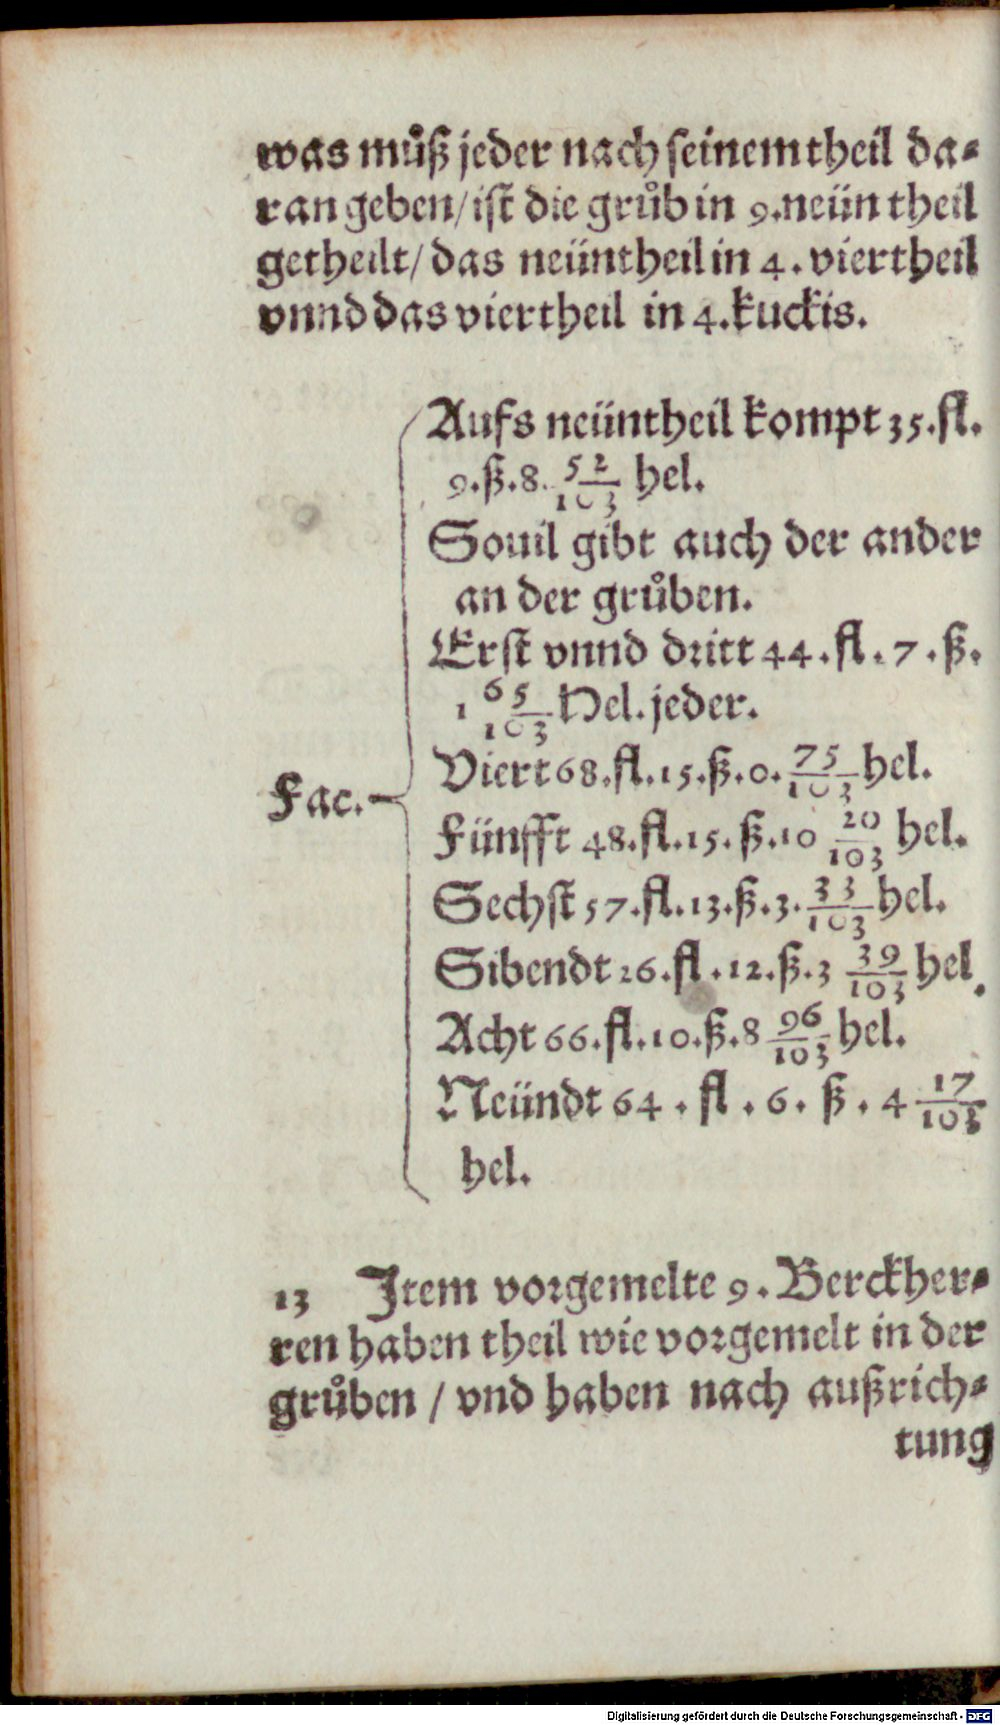 was můß jeder nach seinem theil da⸗
ran geben/ ist die grůb in 9. neün theil
getheilt/ das neüntheil in 4. viertheil
vnnd das viertheil in 4. kuckis.
Aufs neüntheil kompt 35. fl.
9. ß. 8. 52/103 hel.
Souil gibt auch der ander
an der grůben.
Erst vnnd dritt 44. fl. 7. ß.
1 65/103 Hel. jeder.
Fac.
Viert 68. fl. 15. ß. 0. 75/103 hel.
Fünfft 48. fl. 15. ß. 10 20/103 hel.
Sechst 57. fl. 13. ß. 3. 33/103 hel.
Sibendt 26. fl. 12. ß. 3 39/103 hel.
Acht 66. fl. 10. ß. 8 96/103 hel.
Neündt 64. fl. 6. ß. 4 17/103
hel.
13 Item vorgemelte 9. Berckher⸗
ren haben theil wie vorgemelt in der
grůben / vnd haben nach außrich⸗
tung
Digitalisierung gefördert durch die Deutsche Forschungsgemeinschaft - DFG